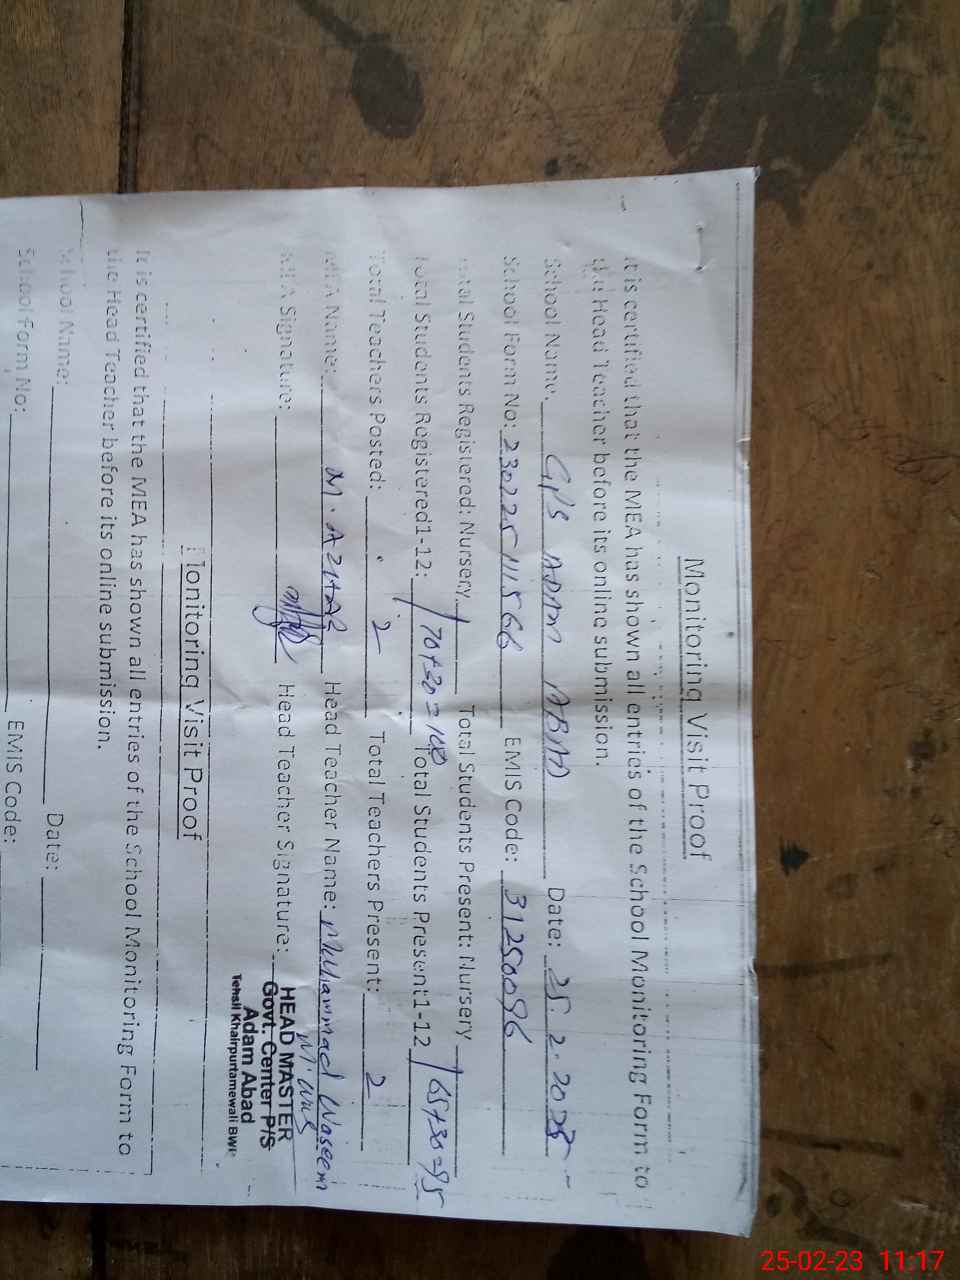 Monitoring Visit Proof
It is certified that the MEA has shown all entries of the School Monitoring Form to
the Head Teacher before its online submission.
School Name: G/S ADAM ABAD Date: 25.2.2023
School Form No: 230225111566 EMIS Code: 31250096
Total Students Registered: Nursery Total Students Present: Nursery
Total Students Registered1-12: 70+30=100 Total Students Present1-12 65+30=95
Total Teachers Posted: 2 Total Teachers Present: 2
MEA Name: M. AZHAR Head Teacher Name: Muhammad Waseem
MEA Signature: Head Teacher Signature:
HEAD MASTER
Govt. Center P/S
Adam Abad
Tehsil Khairpurtamewali BWP
Monitoring Visit Proof
It is certified that the MEA has shown all entries of the School Monitoring Form to
the Head Teacher before its online submission.
School Name: Date:
School Form No: EMIS Code:
25-02-23 11:17